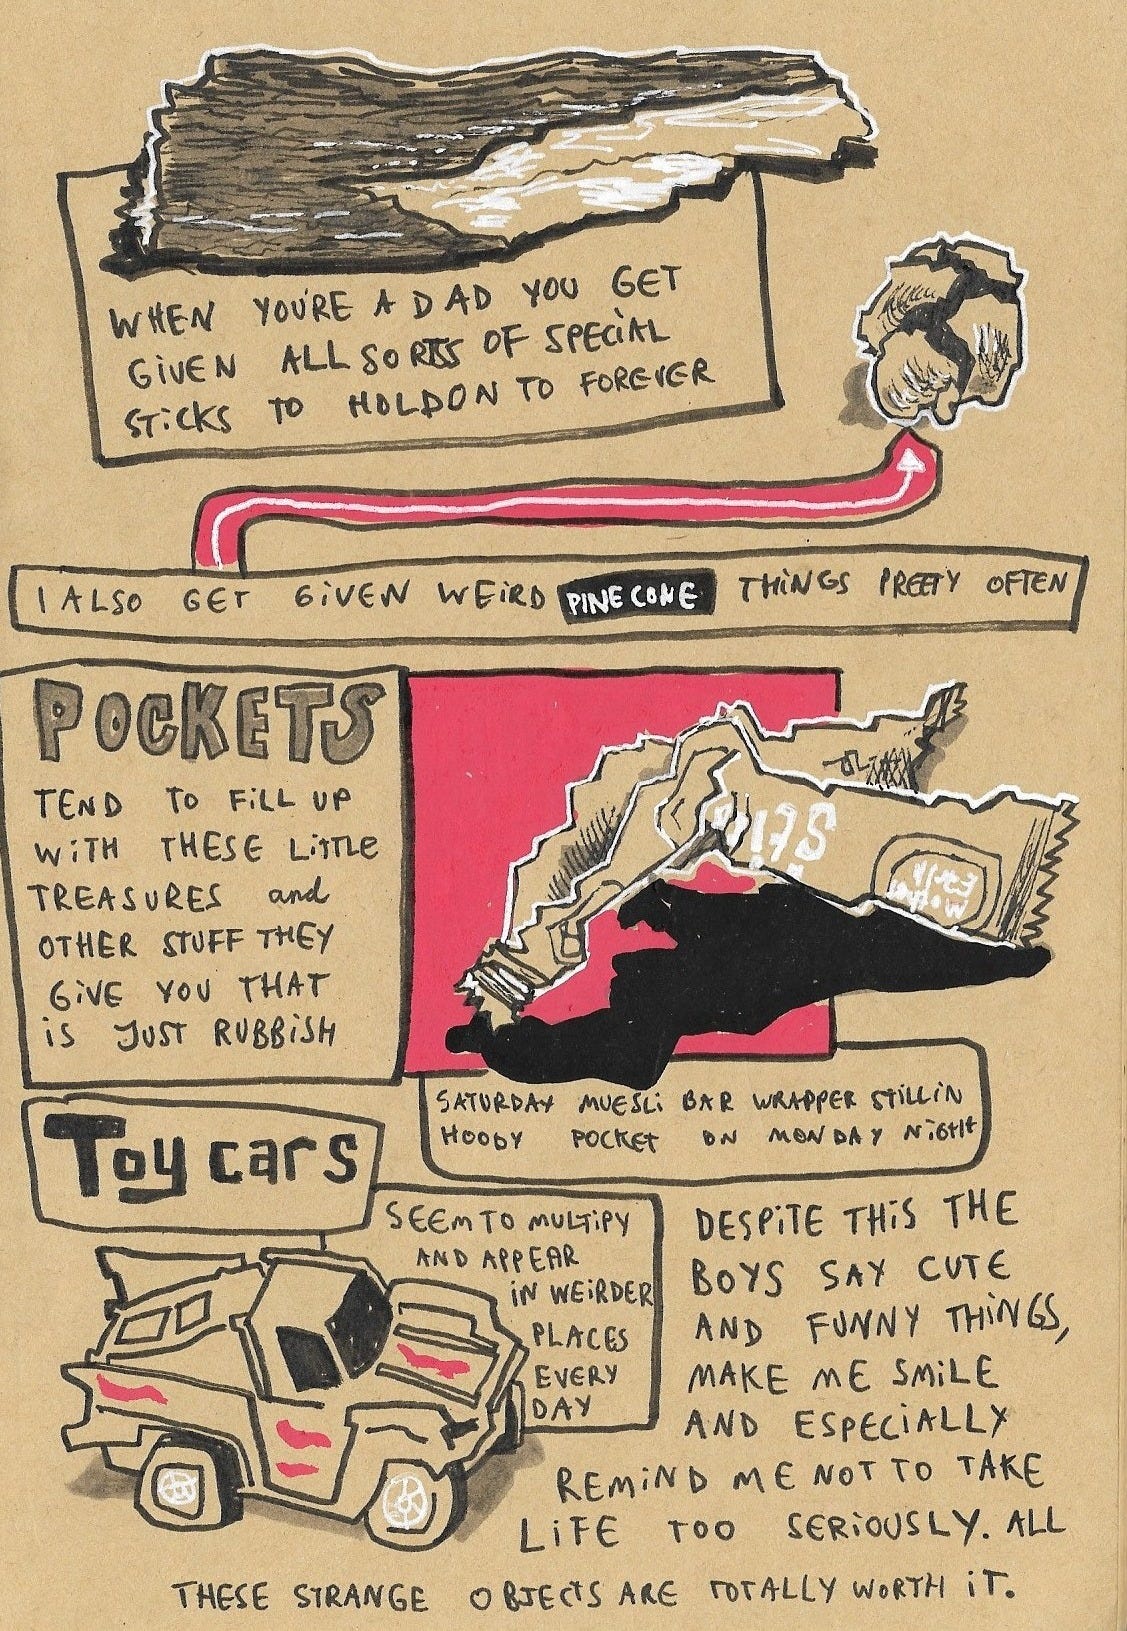 WHEN YOU'RE A DAD YOU GET
GIVEN ALL SORTS OF SPECIAL
STICKS TO HOLD ON TO FOREVER
I ALSO GET GIVEN WEIRD PINE CONE THINGS PRETTY OFTEN
POCKETS
TEND TO FILL UP
WITH THESE LITTLE
TREASURES and
OTHER STUFF THEY
GIVE YOU THAT
iS JUST RUBBISH
mother
EARTH
SATURDAY MUESLI BAR WRAPPER STILL IN
HOODY POCKET ON MONDAY NIGHT
Toy cars
SEEM TO MULTIPY
AND APPEAR
IN WEIRDER
PLACES
EVERY
DAY
DESPITE THIS THE
BOYS SAY CUTE
AND FUNNY THINGS,
MAKE ME SMILE
AND ESPECIALLY
REMIND ME NOT TO TAKE
LIFE TOO SERIOUSLY. ALL
THESE STRANGE OBJECTS ARE TOTALLY WORTH IT.